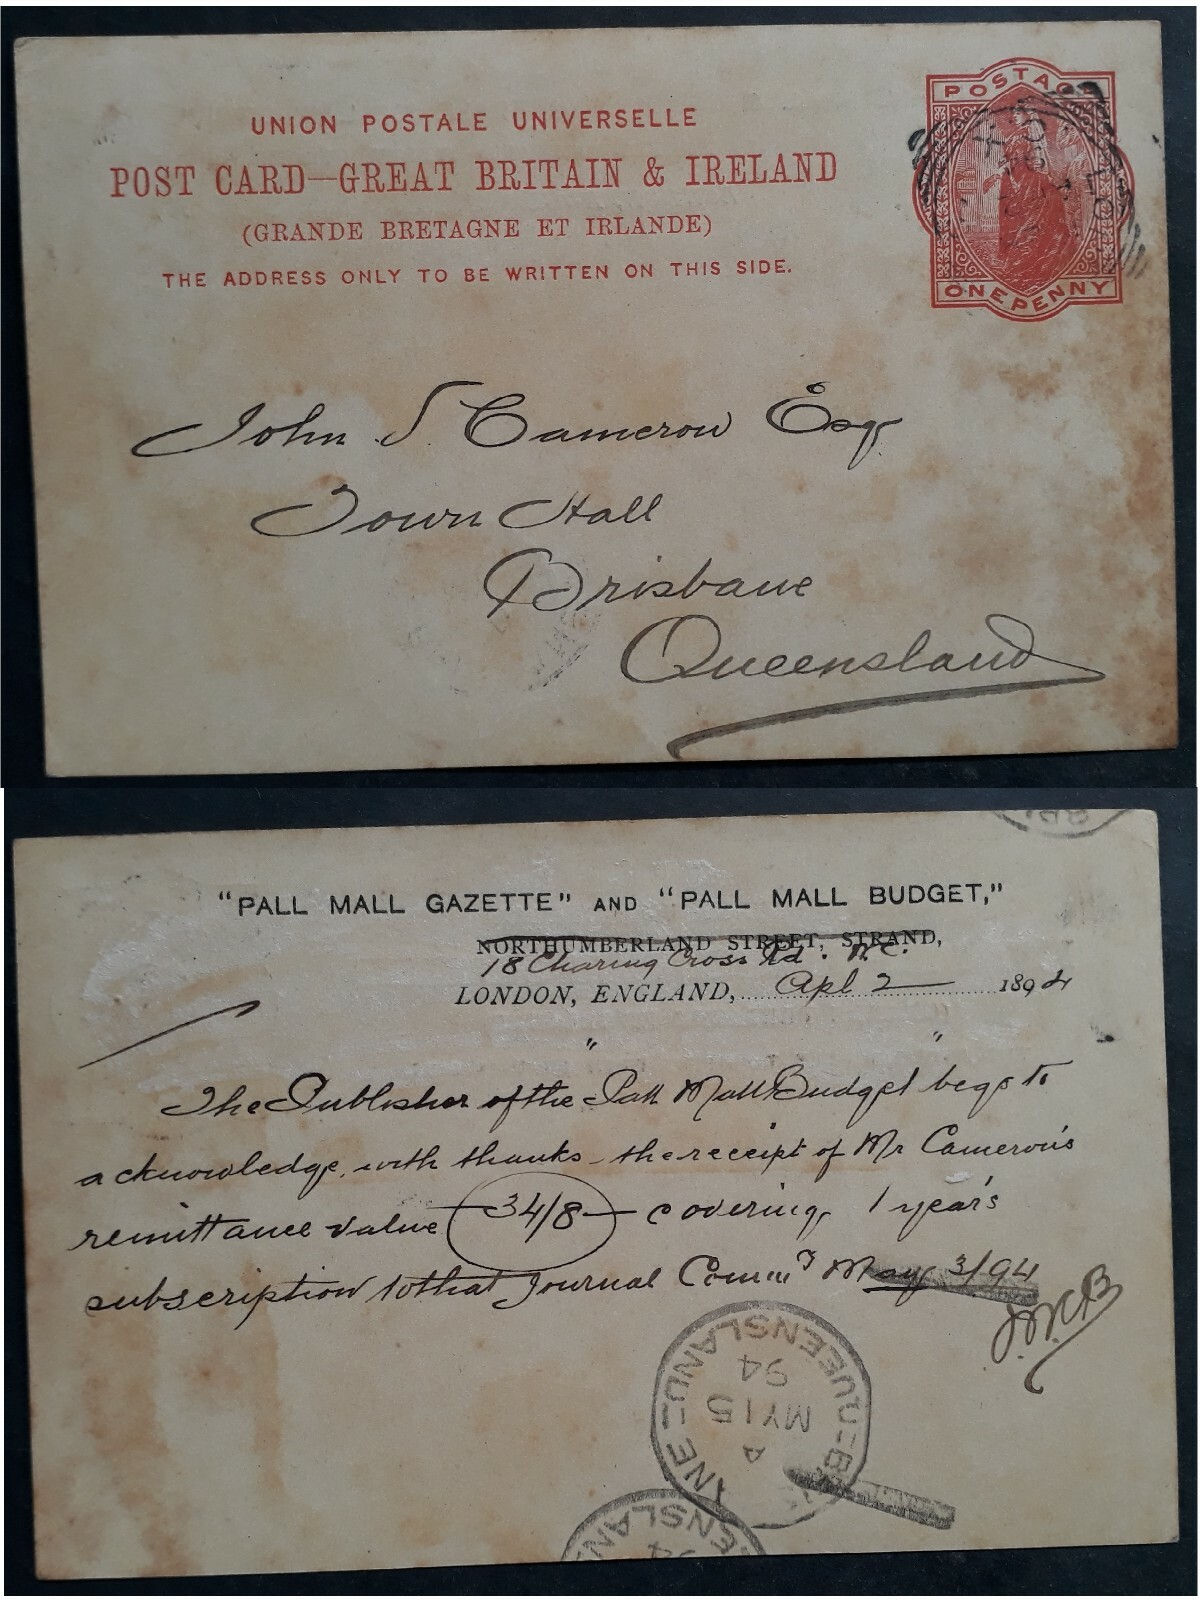 UNION POSTALE UNIVERSELLE
POSTAGE
POST CARD—GREAT BRITAIN & IRELAND
(GRANDE BRETAGNE ET IRLANDE)
THE ADDRESS ONLY TO BE WRITTEN ON THIS SIDE.
ONE PENNY
John S. Cameron Esqr.
Town Hall
Brisbane
Queensland
"PALL MALL GAZETTE" AND "PALL MALL BUDGET,"
NORTHUMBERLAND STREET, STRAND,
18 Charing Cross Rd. W.C.
LONDON, ENGLAND, Apl 2 1894
The Publisher of the "Pall Mall Budget" begs to
acknowledge, with thanks the receipt of Mr Cameron's
remittance value 34/8 covering 1 year's
subscription to that Journal Commg May 3/94
BRISBANE QUEENSLAND
A
MY 15
94
ENSLAN
94